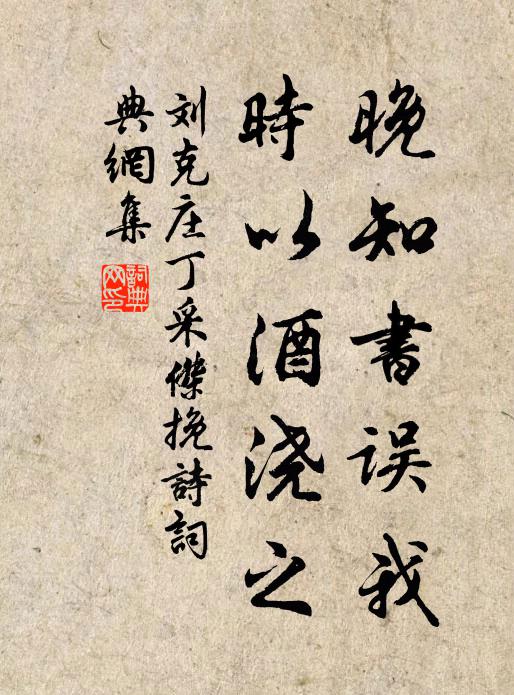 晚知書误我
時以酒浇之
刘克庄丁采傑挽詩詞
典網集
詞典網印